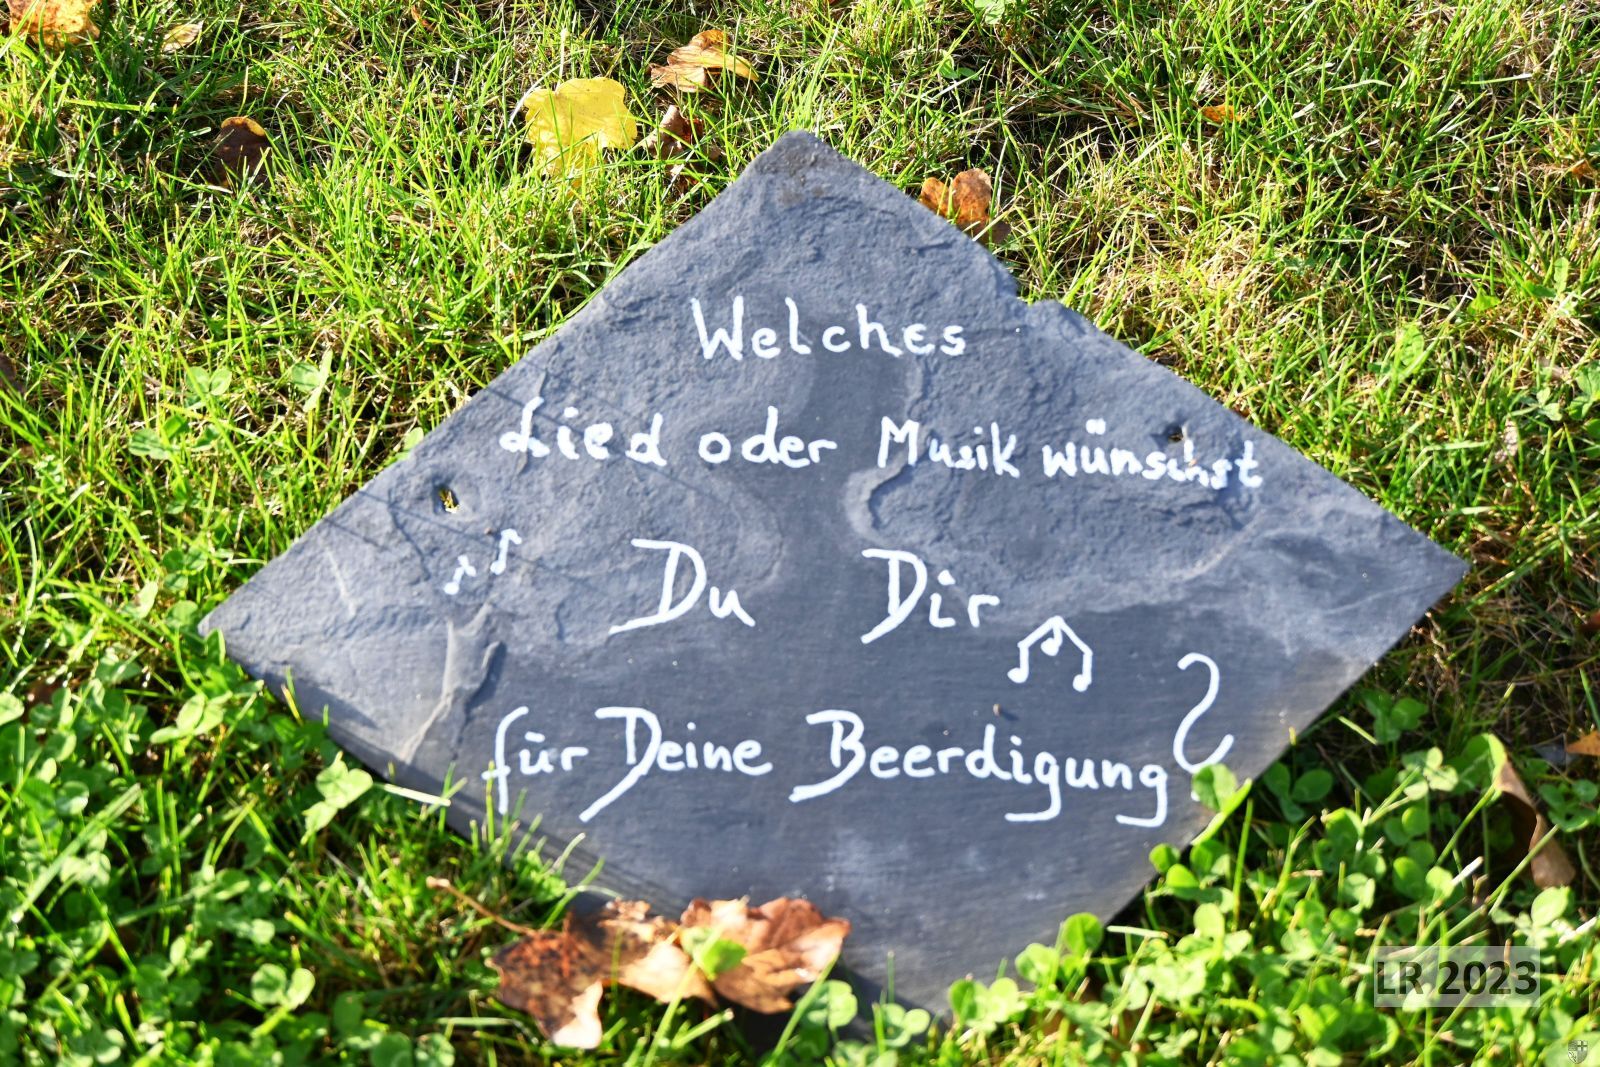 Welches
Lied oder Musik wünschst
Du Dir
für Deine Beerdigung?
LR 2023